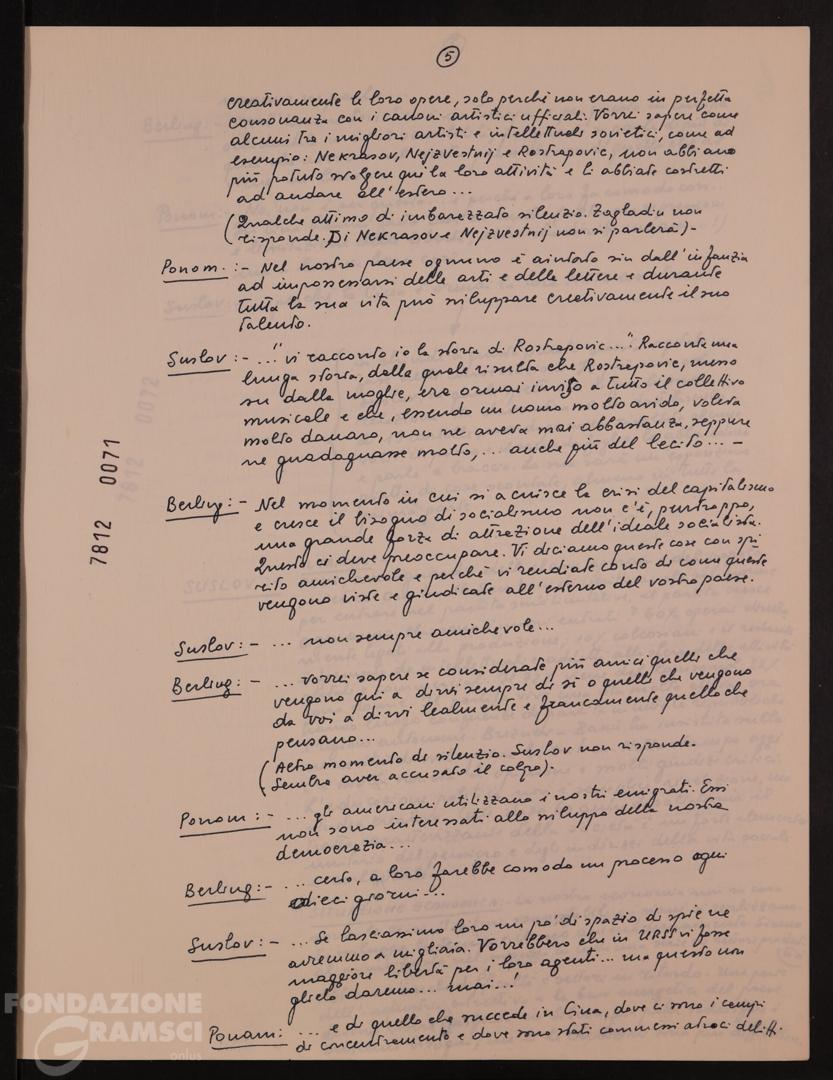 5
creativamente le loro opere, solo perché non erano in perfetta
consonanza con i canoni artistici ufficiali. Vorrei sapere come
alcuni tra i migliori artisti e intellettuali sovietici, come ad
esempio: Nekrasov, Nejzvestnij e Rostrapovic, non abbiano
più potuto svolgere qui la loro attività e li abbiate costretti
ad andare all'estero...
(Qualche attimo di imbarazzato silenzio. Zagladin non
risponde. Di Nekrasov e Nejzvestnij non si parlerà)-
Ponom. :- Nel nostro paese ognuno è aiutato sin dall'infanzia
ad impossessarsi delle arti e delle lettere e durante
tutta la sua vita può sviluppare creativamente il suo
talento.
Suslov :- ..." vi racconto io la storia di Rostrapovic...". Racconta una
lunga storia, dalla quale risulta che Rostrapovic, messo
su dalla moglie, era ormai inviso a tutto il collettivo
musicale e che, essendo un uomo molto avido, voleva
molto danaro, non ne aveva mai abbastanza, seppure
ne guadagnasse molto, ... anche più del lecito... -
Berling :- Nel momento in cui si acuisce la crisi del capitalismo
e cresce il bisogno di socialismo non c'è, purtroppo,
una grande forza di attrazione dell'ideale socialista.
Questo ci deve preoccupare. Vi diciamo queste cose con spi
rito amichevole e perché vi rendiate conto di come queste
vengono viste e giudicate all'esterno del vostro paese.
Suslov :- ... non sempre amichevole...
Berling :- ... vorrei sapere se considerate più amici quelli che
vengono qui a dirvi sempre di sì o quelli che vengono
da voi a dirvi lealmente e francamente quello che
pensano...
(Altro momento di silenzio. Suslov non risponde.
Sembra aver accusato il colpo).
Ponom :- ... gli americani utilizzano i nostri emigrati. Essi
non sono interessati allo sviluppo della nostra
democrazia...
Berling :- ... certo, a loro farebbe comodo un processo ogni
dieci giorni...
Suslov :- ... Se lasciassimo loro un po' di spazio di spie ne
avremmo a migliaia. Vorrebbero che in URSS vi fosse
maggiore libertà per i loro agenti... ma questo non
glielo daremo... mai...!
Ponam: ... e di quello che succede in Cina, dove ci sono i campi
di concentramento e dove sono stati commessi atroci delitti.
7812 0071
FONDAZIONE
GRAMSCI
onlus